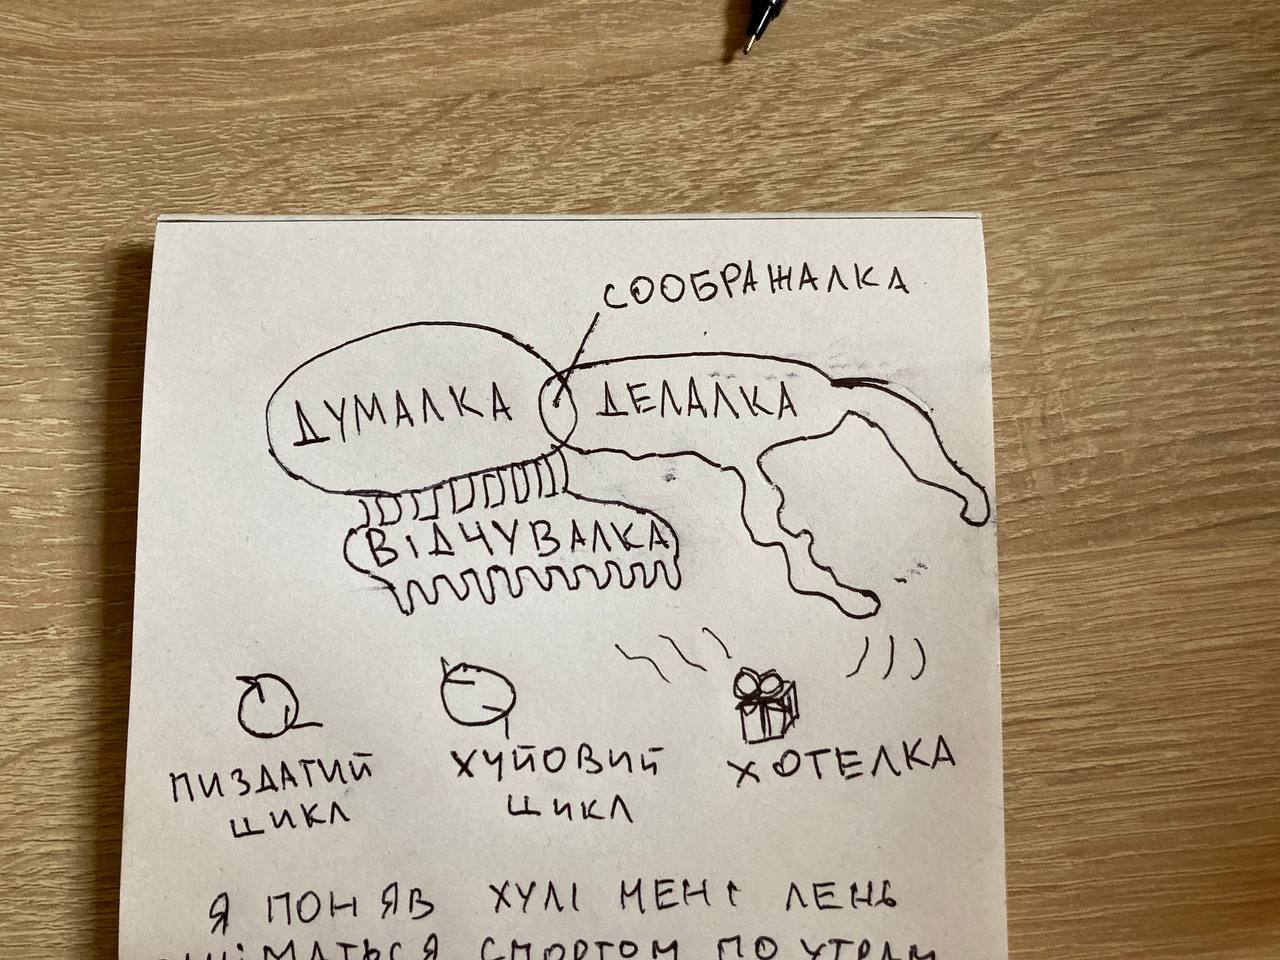 СООБРАЖАЛКА
ДУМАЛКА
ДЕЛАЛКА
ВІДЧУВАЛКА
ПИЗДАТИЙ
ЦИКЛ
ХУЙОВИЙ
ЦИКЛ
ХОТЕЛКА
Я ПОНЯВ ХУЛІ МЕНІ ЛЕНЬ
СПОРТОМ ПО УТРАМ